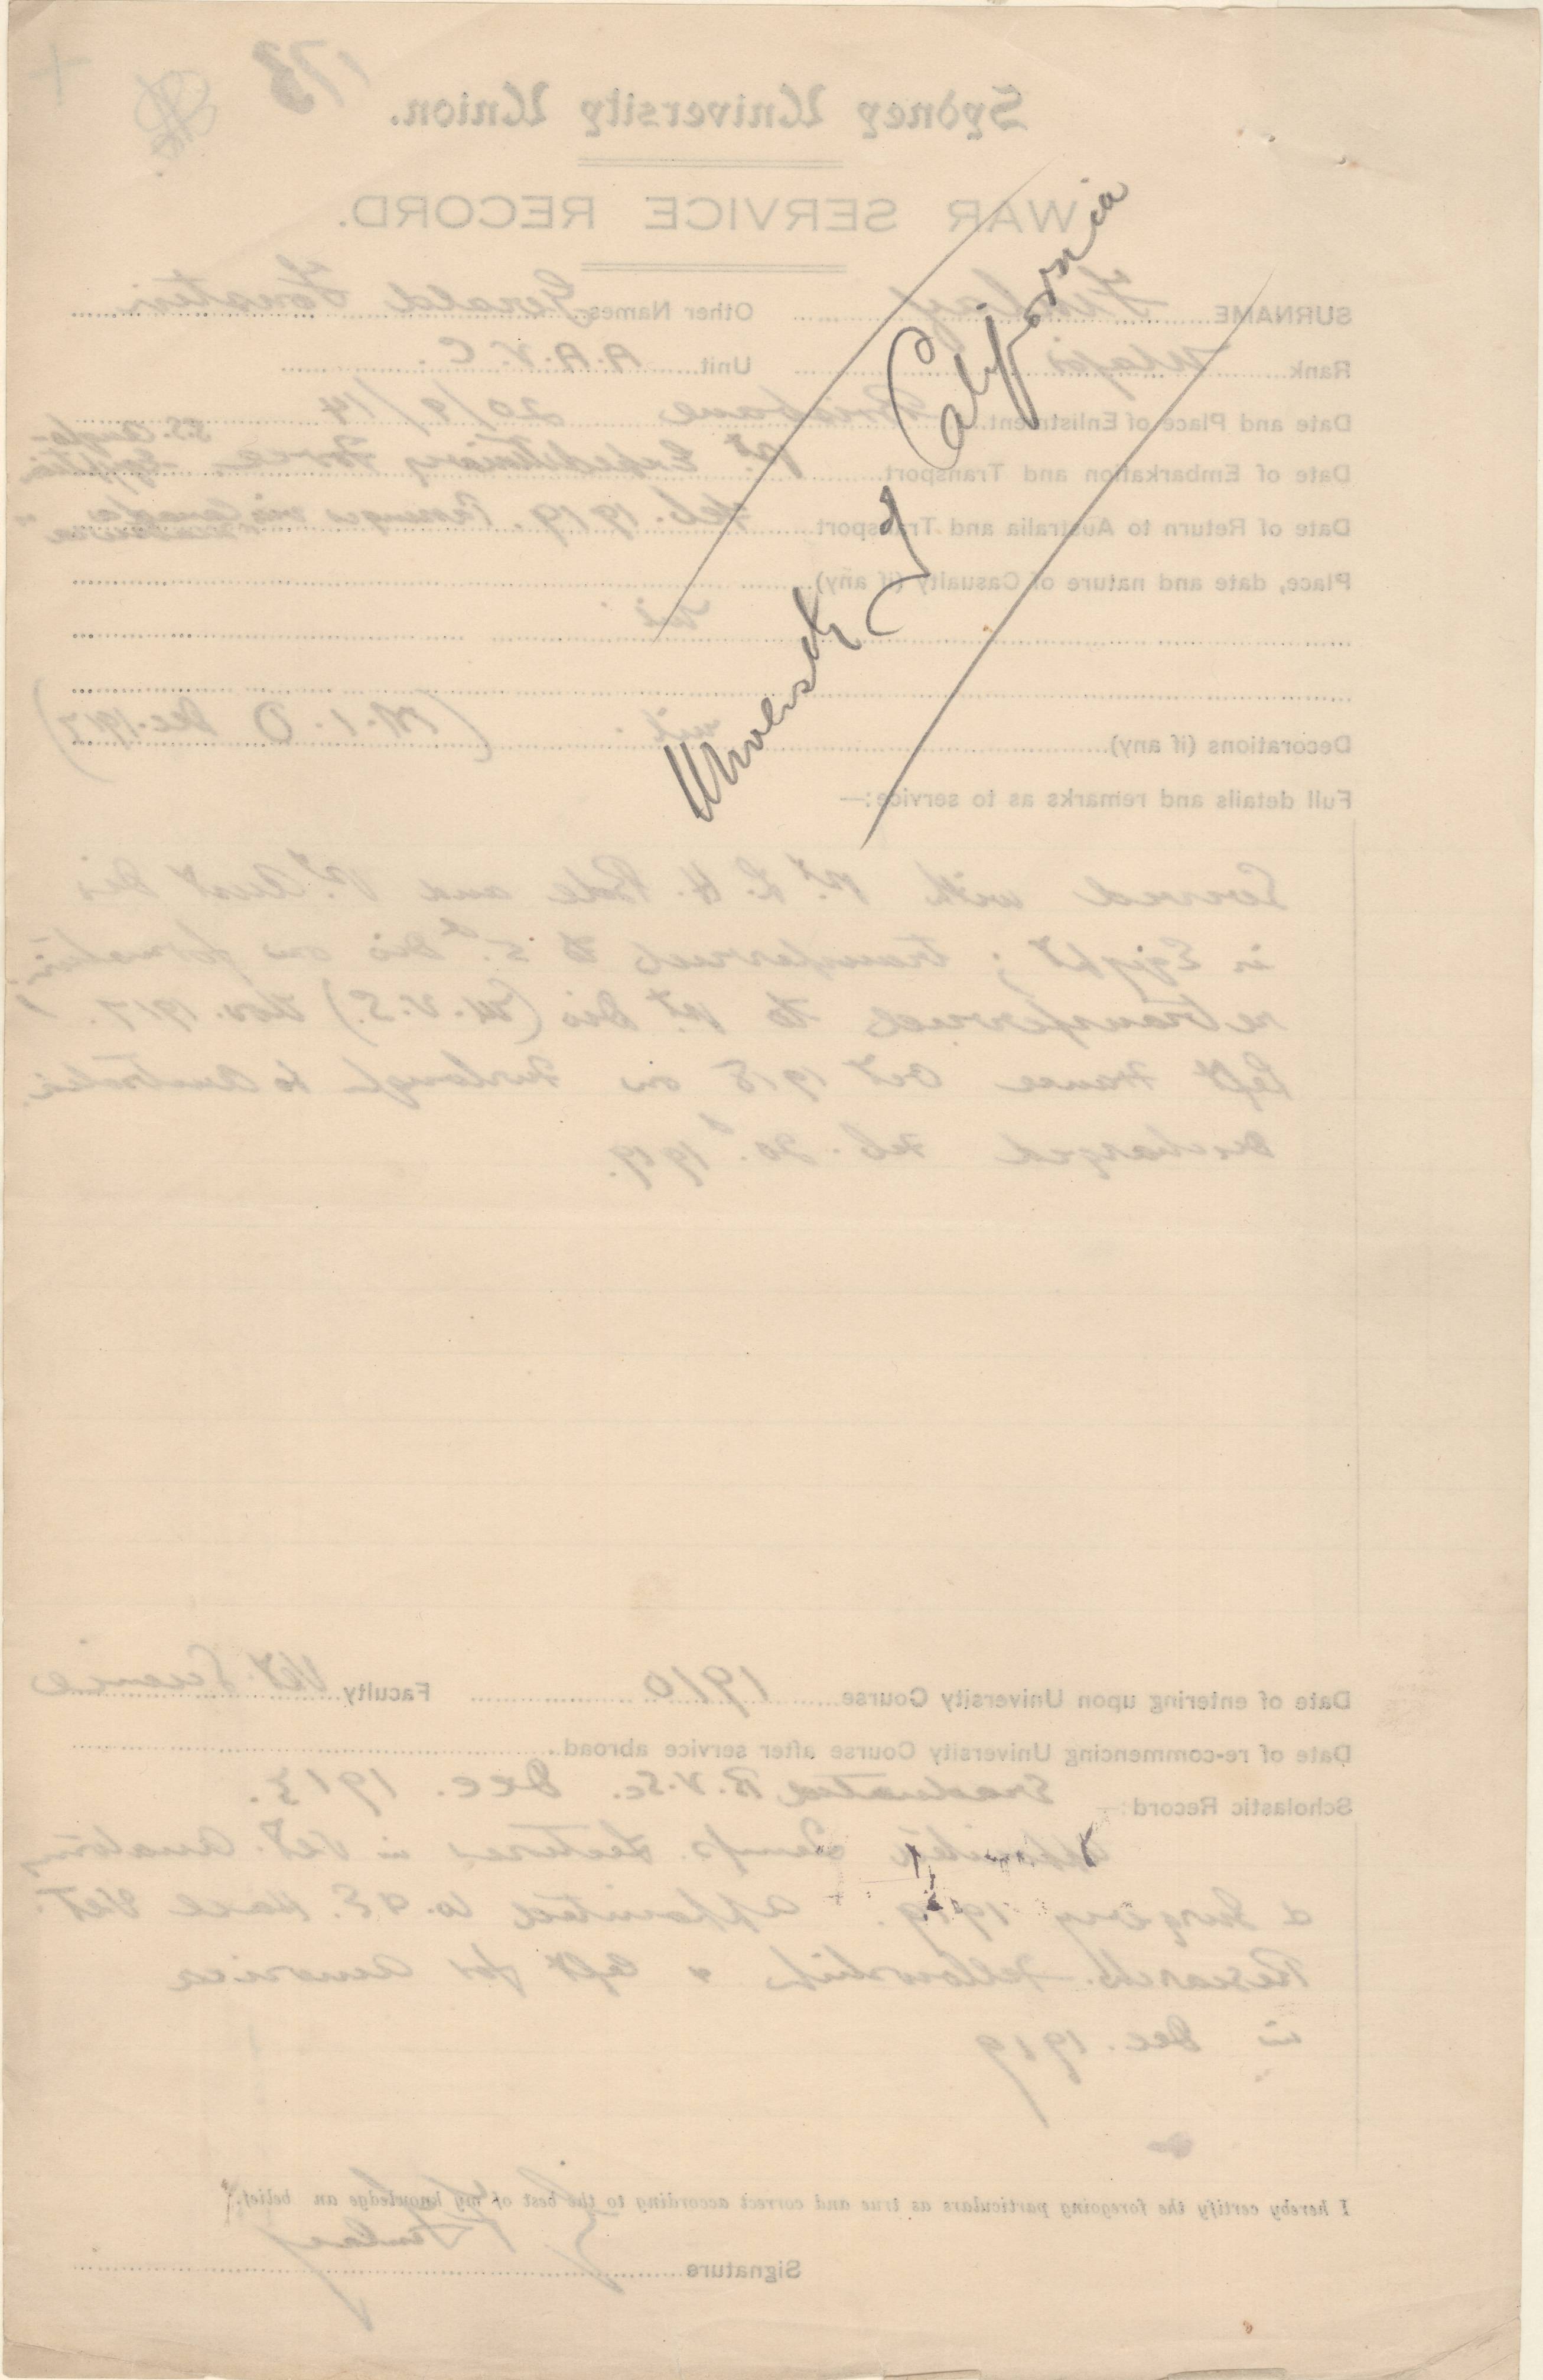 University of California
173
Sydney University Union.
WAR SERVICE RECORD.
SURNAME Finlay Other Names Gerald
Rank Major Unit A.A.V.C.
Date and Place of Enlistment Brisbane 20/9/14
Date of Embarkation and Transport 1st Expeditionary Force S.S. Anglo-Egyptian
Date of Return to Australia and Transport Feb. 1919. via Canada
Place, date and nature of Casualty (if any)
Nil.
Decorations (if any) nil. (M.I.D Dec. 1917)
Full details and remarks as to service:—
Served with 1st L.H. Bde and 1st Aust Div
in Egypt; transferred to 5th Div on formation;
retransferred to 1st Div (M.V.S.) Nov. 1917.
Left France Oct 1918 on Furlough to Australia.
Discharged Feb. 20th 1919.
Date of entering upon University Course 1910 Faculty Vet. Science
Date of re-commencing University Course after service abroad
Scholastic Record:— Graduated B.V.Sc. Dec. 1913.
Appointed Lecturer in Vet. Anatomy
& Surgery 1919. Appointed W. & E. Hall Vet.
Research Fellowship & left for America
in Dec. 1919
I hereby certify the foregoing particulars as true and correct according to the best of my knowledge an belief.
Signature G. Finlay